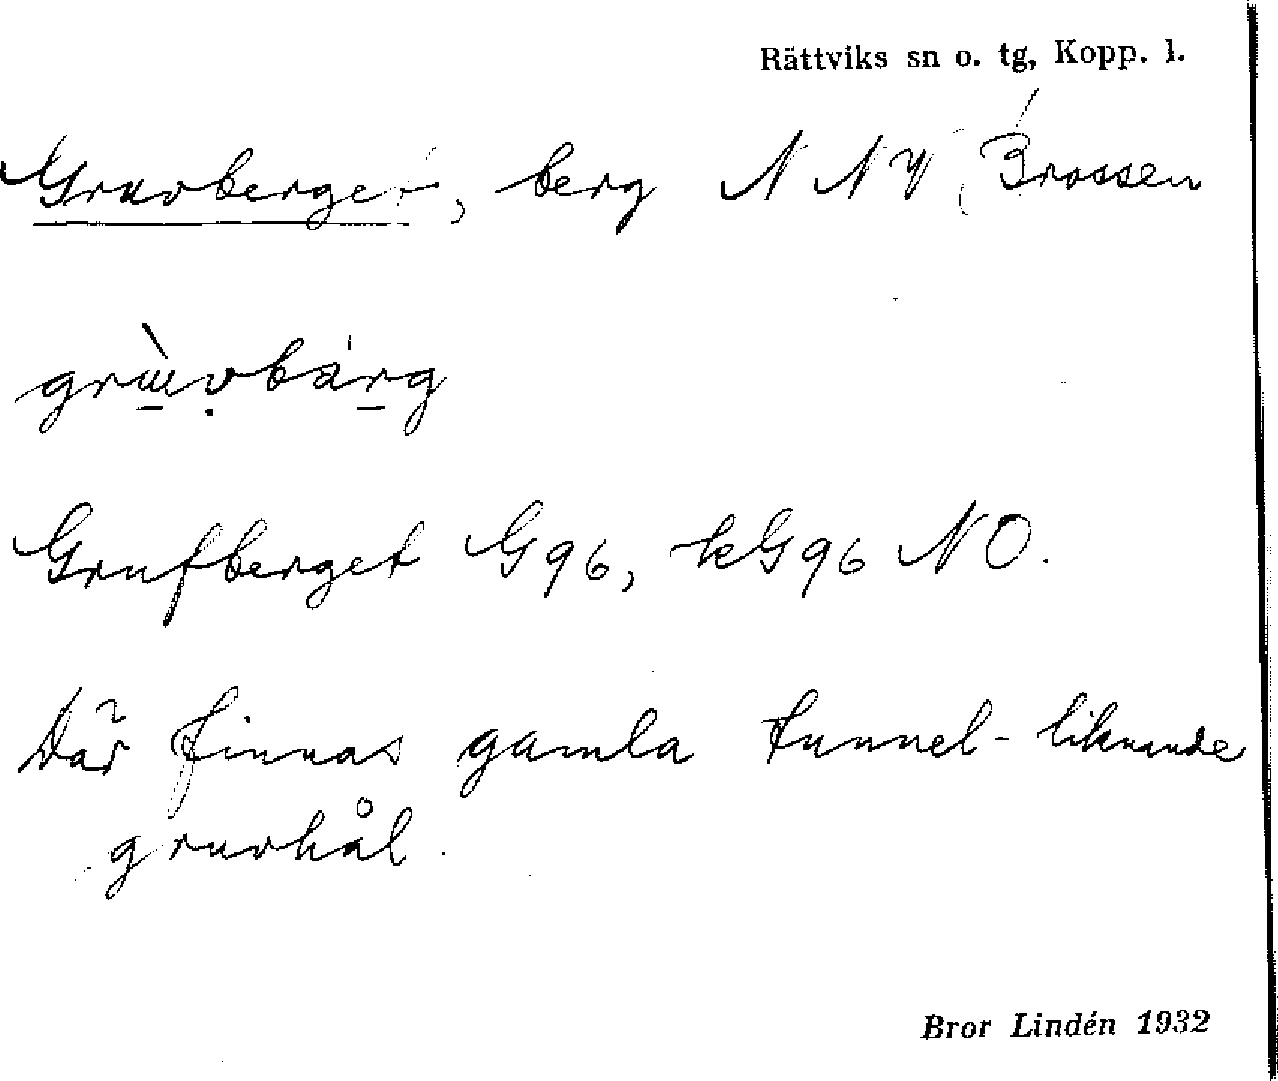 Rättviks sn o. tg, Kopp. l.
Gruvberget, berg NNV Brossen
Grufberget G96, kG96 NO.
Där finnas gamla tunnel-liknande
gruvhål.
Bror Lindén 1932